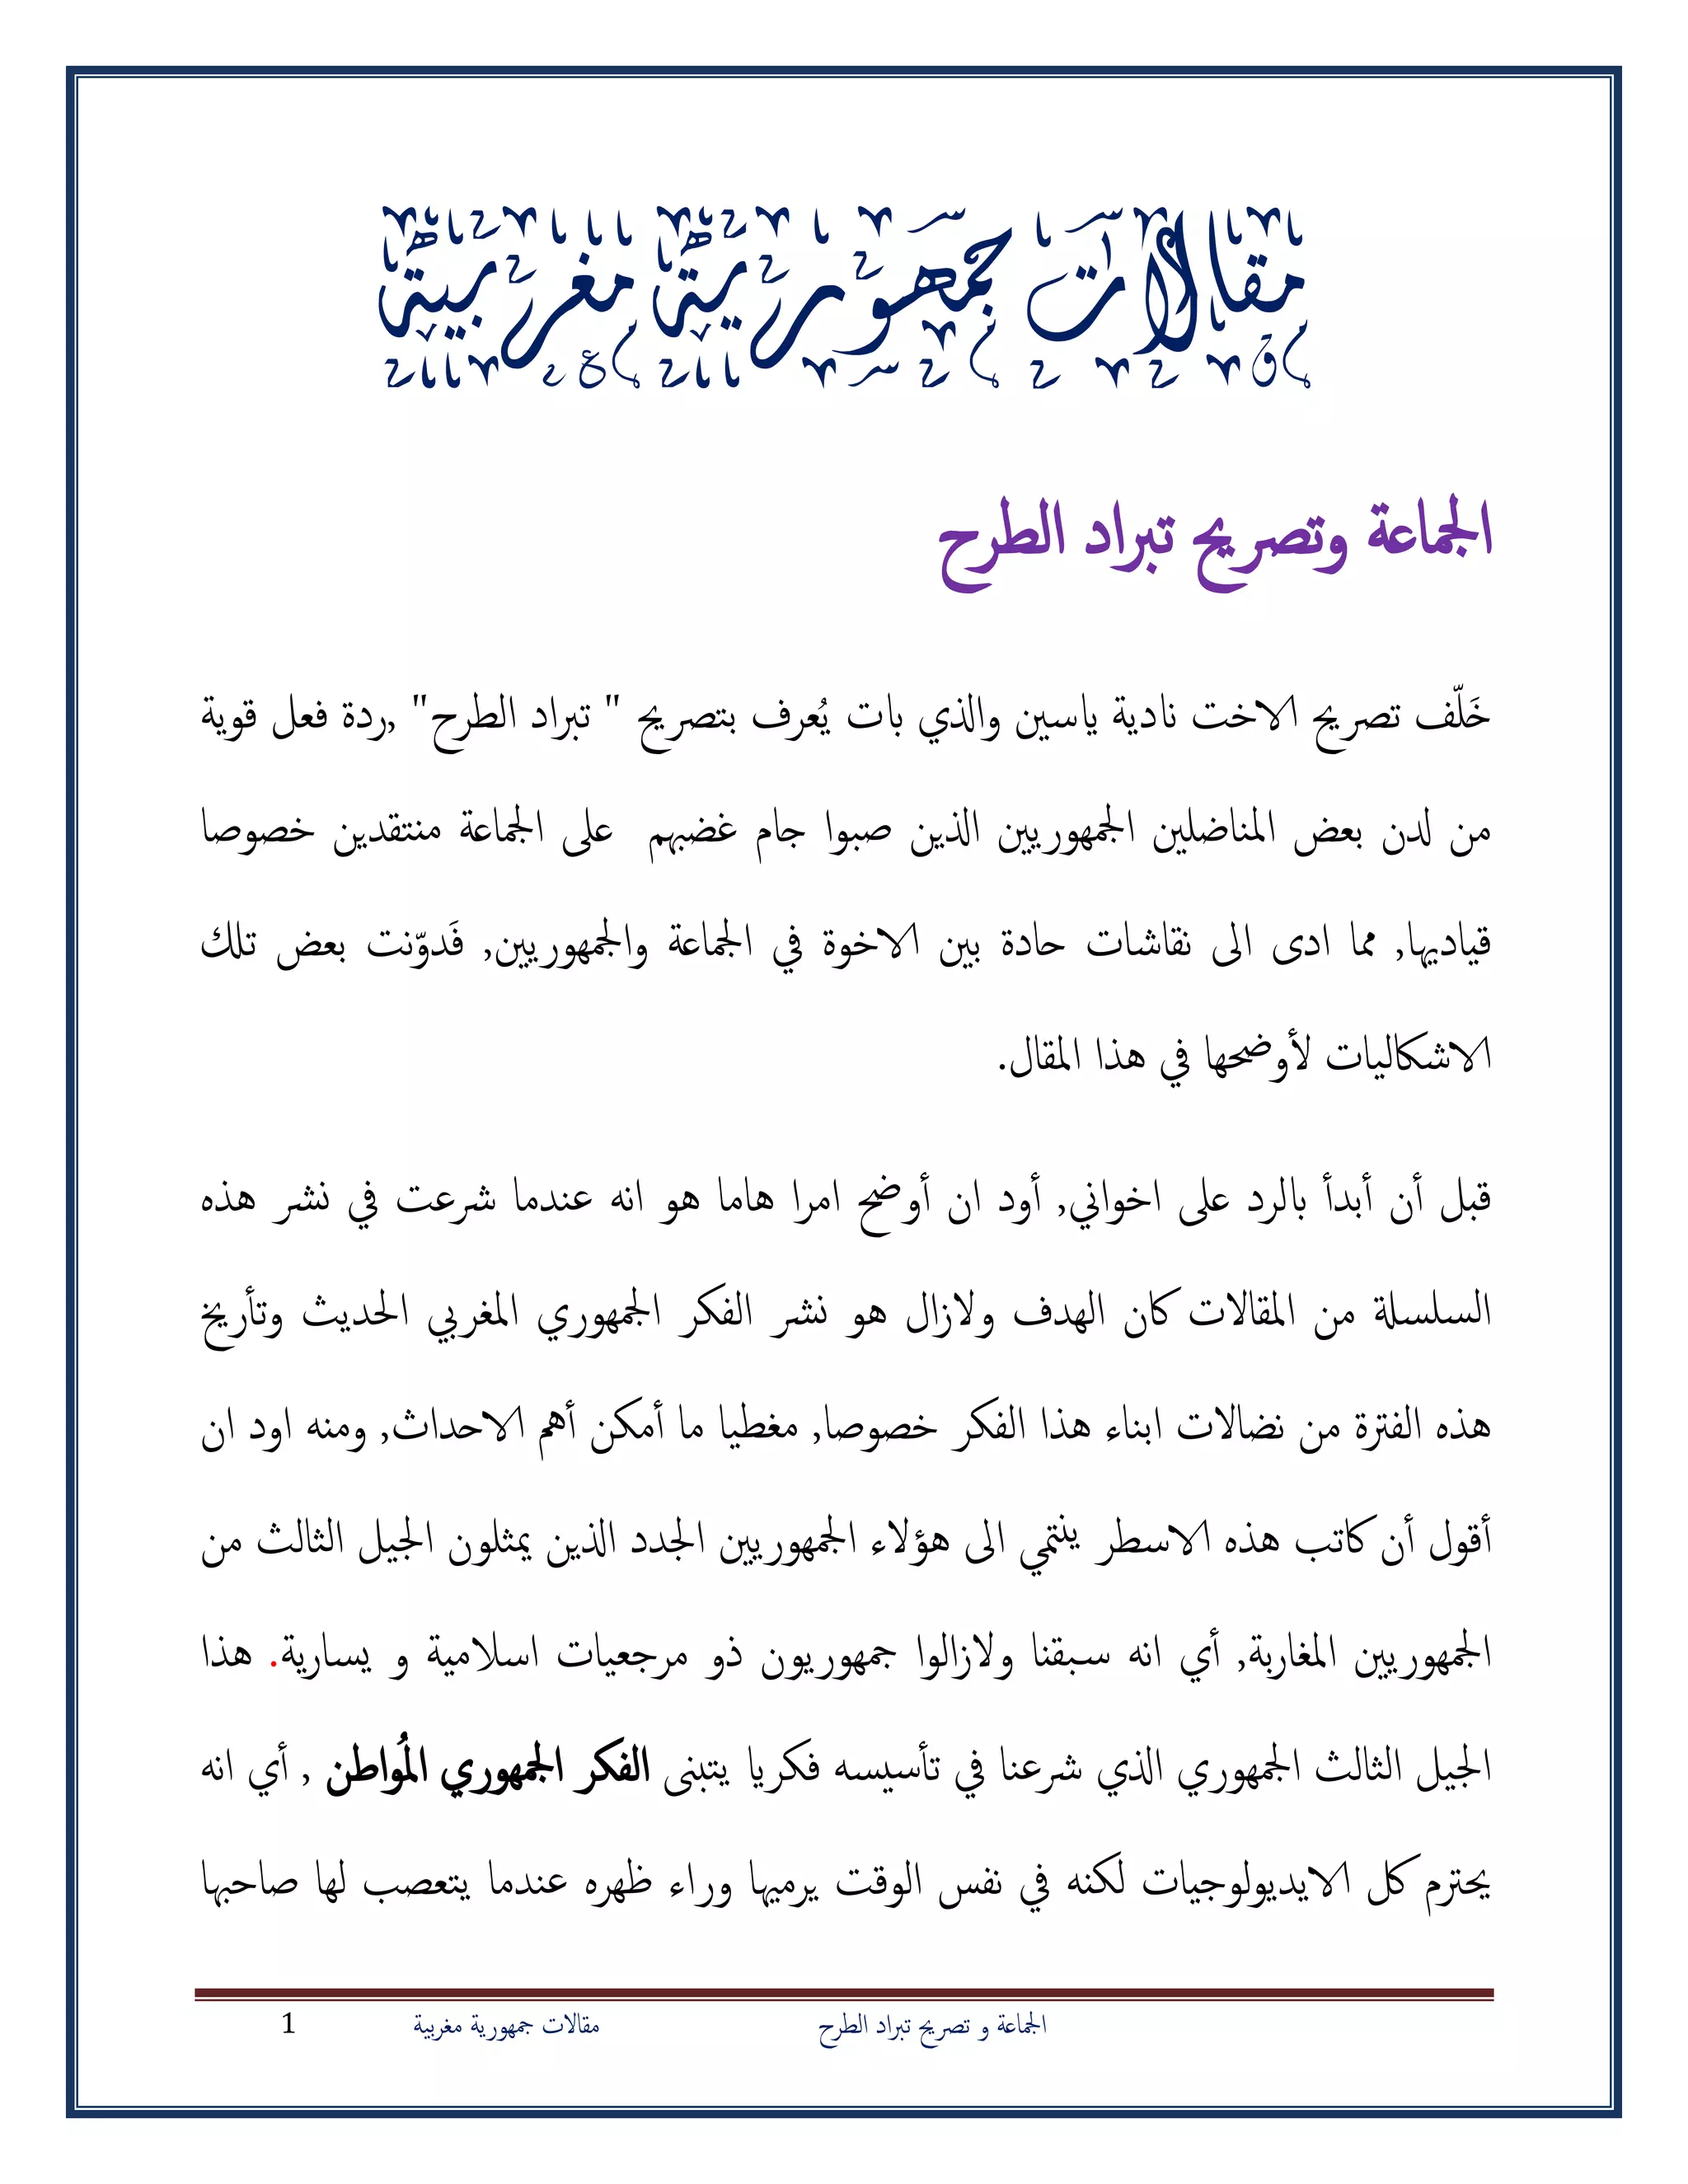 مقالات جمهورية مغربية
الجماعة وتصريح تبراد الطرح
خَلّف تصريح الاخت نادية ياسين والذي بات يُعرف بتصريح " تبراد الطرح" ,ردة فعل قوية
من لدن بعض المناضلين الجمهوريين الذين صبوا جام غضبهم على الجماعة منتقدين خصوصا
قياديها, مما ادى الى نقاشات حادة بين الاخوة في الجماعة والجمهوريين, فَدوّنت بعض تلك
الاشكاليات لأوضحها في هذا المقال.
قبل أن أبدأ بالرد على اخواني, أود ان أوضح امرا هاما هو انه عندما شرعت في نشر هذه
السلسلة من المقالات كان الهدف ولازال هو نشر الفكر الجمهوري المغربي الحديث وتأريخ
هذه الفترة من نضالات ابناء هذا الفكر خصوصا, مغطيا ما أمكن أهم الاحداث, ومنه اود ان
أقول أن كاتب هذه الاسطر ينتمي الى هؤلاء الجمهوريين الجدد الذين يمثلون الجيل الثالث من
الجمهوريين المغاربة, أي انه سبقنا ولازالوا جمهوريون ذو مرجعيات اسلامية و يسارية. هذا
الجيل الثالث الجمهوري الذي شرعنا في تأسيسه فكريا يتبنى الفكر الجمهوري المُواطن , أي انه
يحترم كل الايديولوجيات لكنه في نفس الوقت يرميها وراء ظهره عندما يتعصب لها صاحبها
الجماعة و تصريح تبراد الطرح مقالات جمهورية مغربية 1